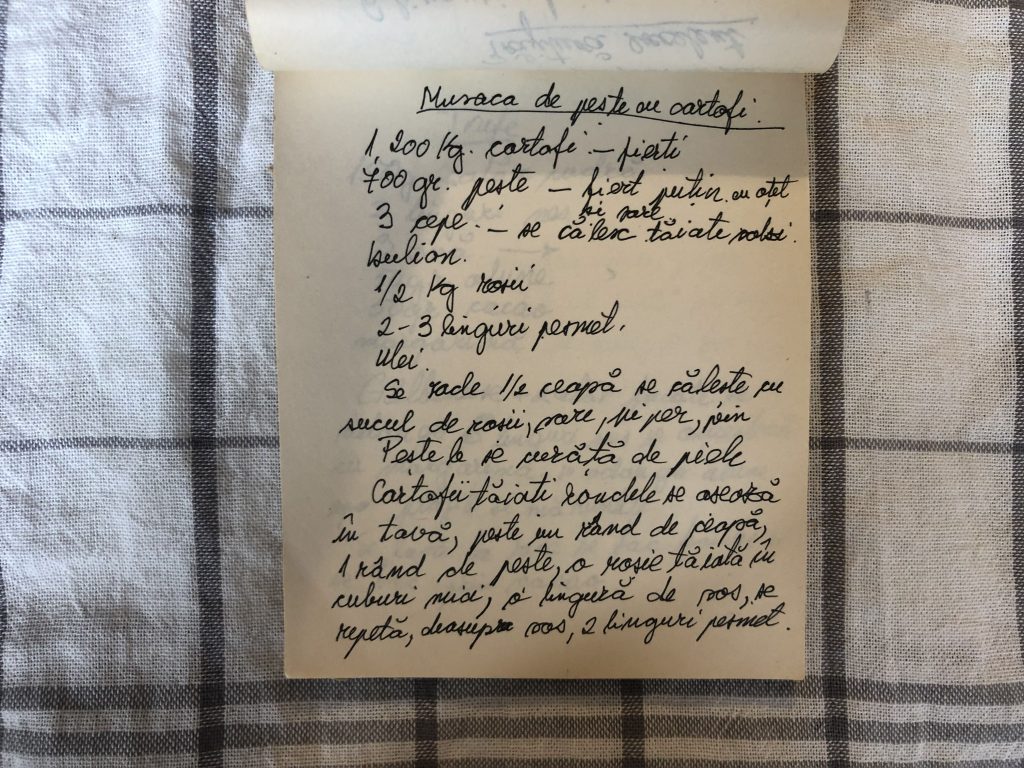 Musaca de peste cu cartofi.
1,200 Kg. cartofi - fierti
700 gr. peste - fiert putin cu oțet
și sare
3 cepe. - se călesc tăiate
bulion.
1/2 Kg rosii
2-3 linguri pesmet.
Ulei.
Se rade 1/2 ceapă se căleste cu
sucul de rosii, sare, piper, vin
Pestele se curăță de piele
Cartofii tăiati rondele se asează
în tavă, peste un rând de ceapă,
1 rând de peste, o rosie tăiată în
cuburi mici, o lingură de sos, se
repetă, deasupra sos, 2 linguri pesmet.